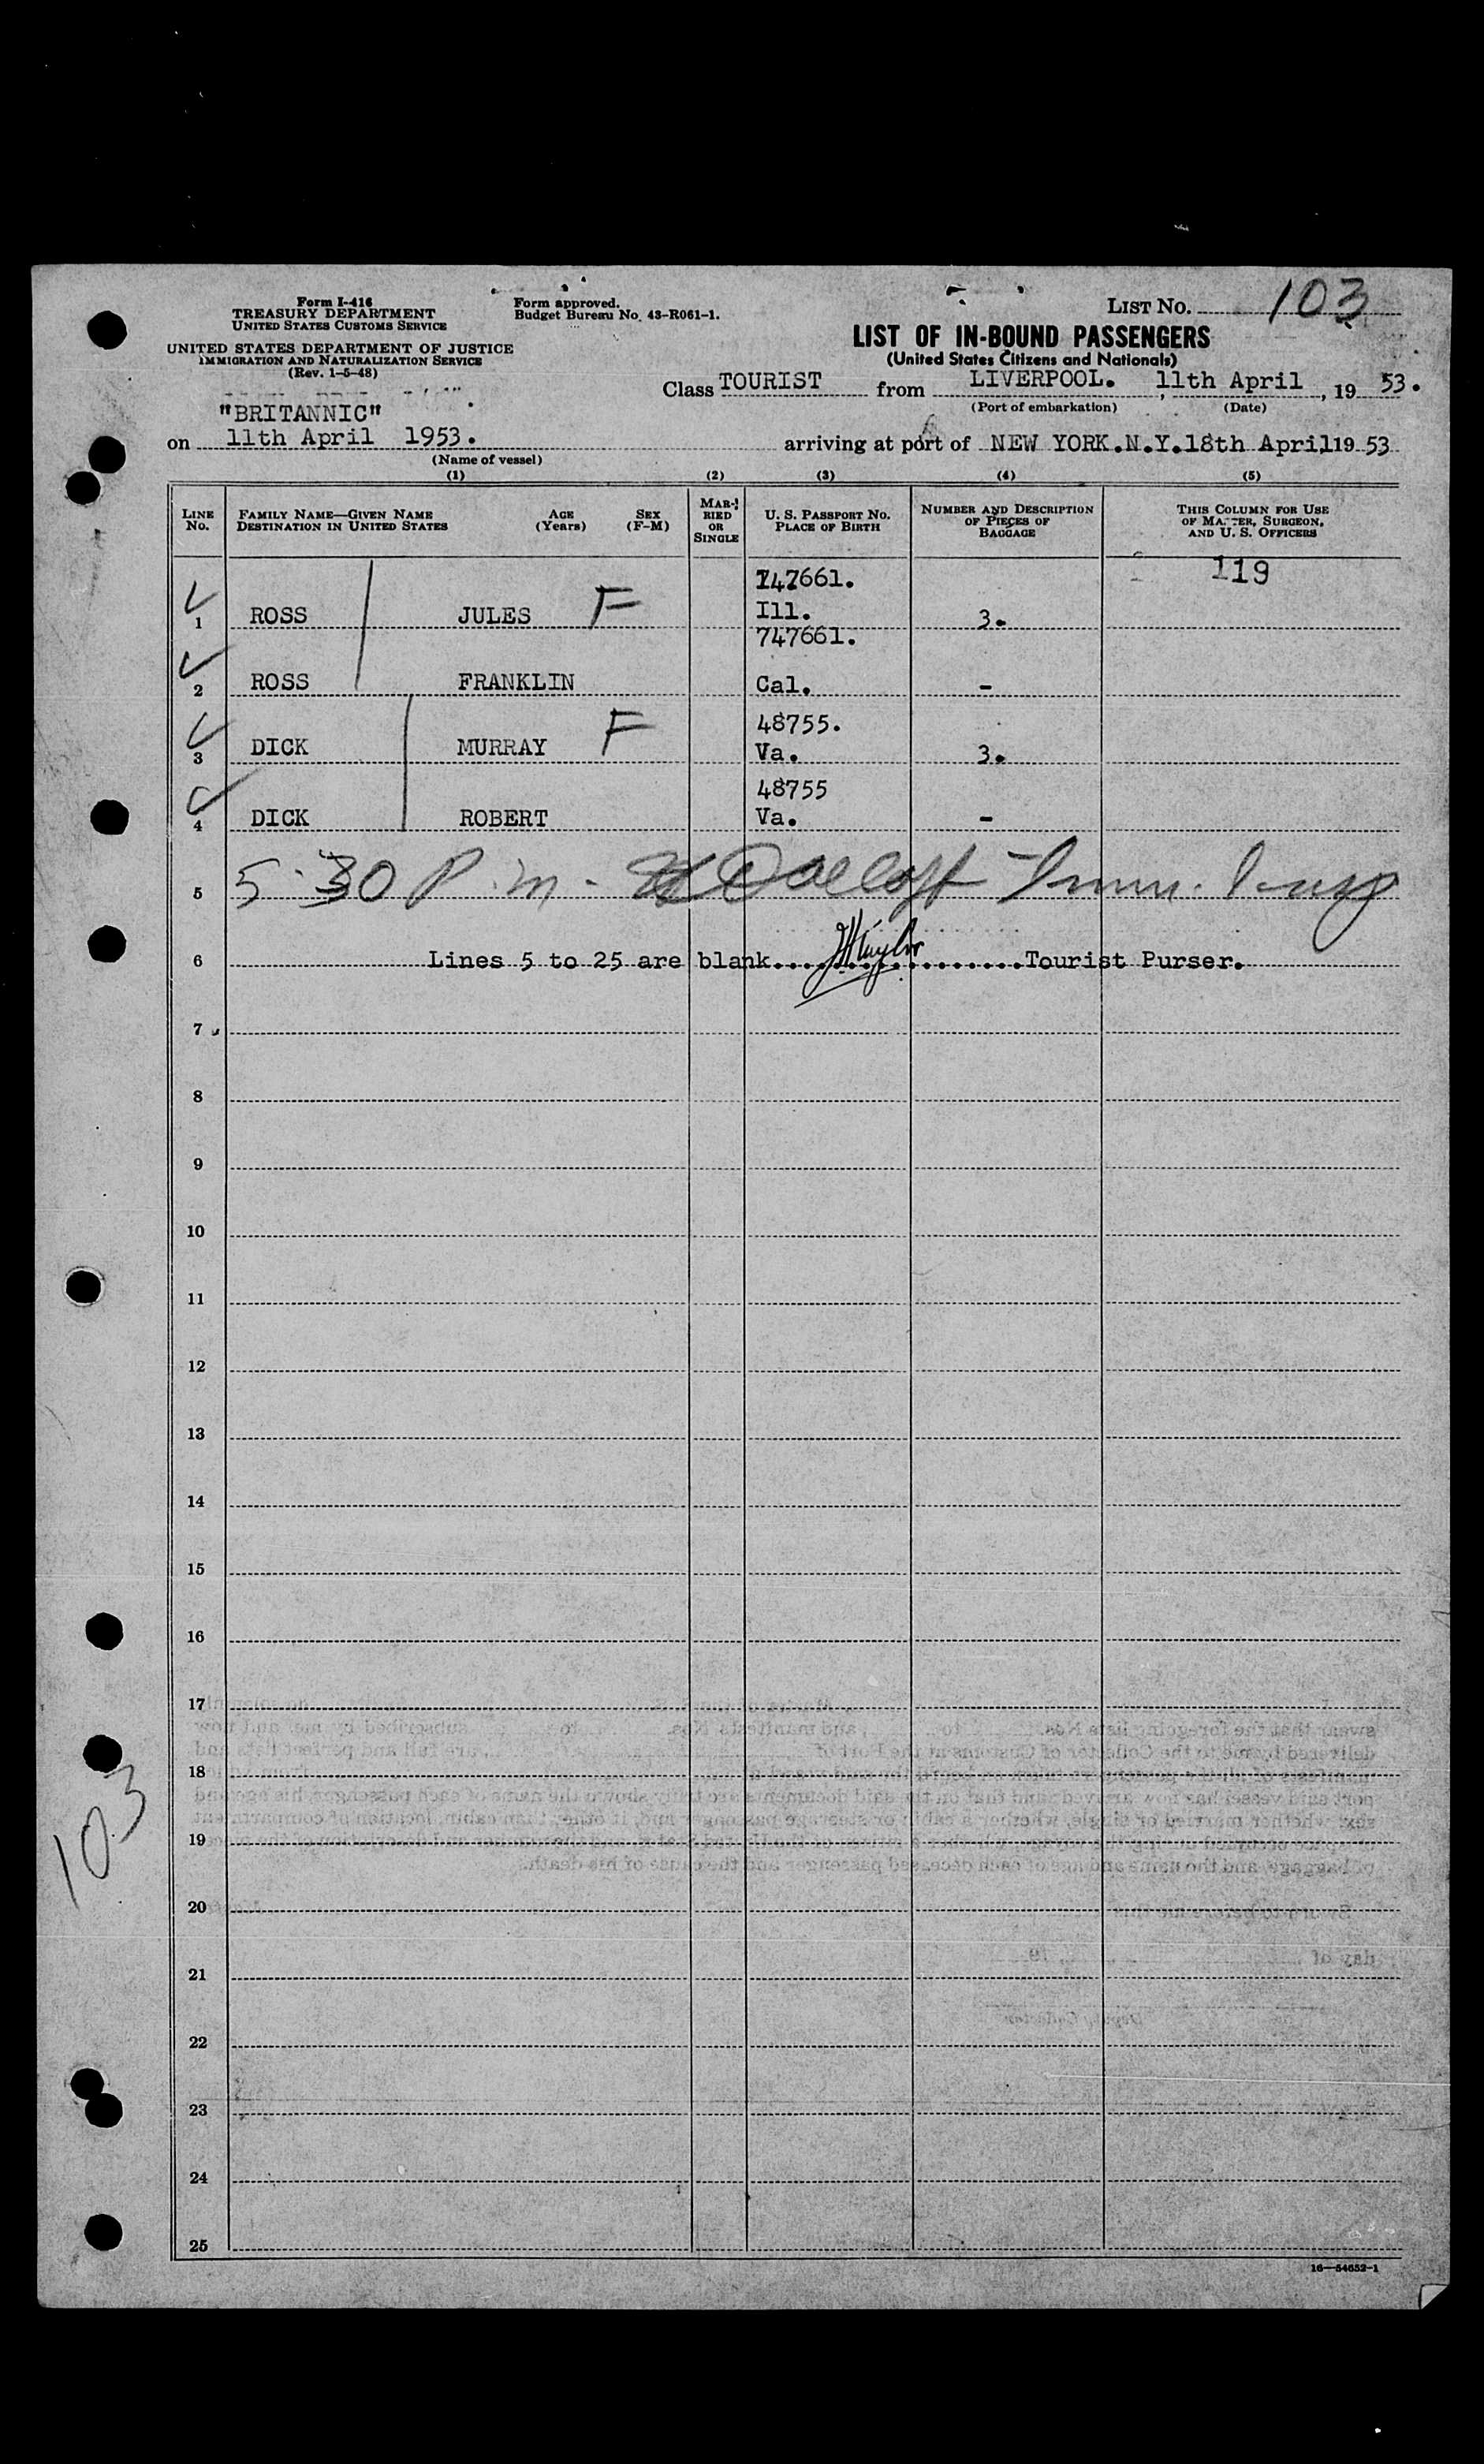 Form I-416
TREASURY DEPARTMENT
UNITED STATES CUSTOMS SERVICE
UNITED STATES DEPARTMENT OF JUSTICE
IMMIGRATION AND NATURALIZATION SERVICE
(Rev. 1-5-48)
Form approved.
Budget Bureau No. 43-R061-1.
LIST No. 103
LIST OF IN-BOUND PASSENGERS
(United States Citizens and Nationals)
Class TOURIST from LIVERPOOL. , 11th April , 19 53.
(Port of embarkation) (Date)
"BRITANNIC"
on 11th April 1953. arriving at port of NEW YORK.N.Y.18th April, 19 53
(Name of vessel)
(1) (2) (3) (4) (5)
LINE No. FAMILY NAME—GIVEN NAME DESTINATION IN UNITED STATES AGE (Years) SEX (F-M) MARRIED OR SINGLE U. S. PASSPORT No. PLACE OF BIRTH NUMBER AND DESCRIPTION OF PIECES OF BAGGAGE THIS COLUMN FOR USE OF MASTER, SURGEON, AND U. S. OFFICERS
119
747661.
1 ROSS JULES F Ill. 3.
747661.
2 ROSS FRANKLIN Cal. -
48755.
3 DICK MURRAY F Va. 3.
48755
4 DICK ROBERT Va. -
5 5:30 P.m. Imm. Insp
6 Lines 5 to 25 are blank. Tourist Purser.
7
8
9
10
11
12
13
14
15
16
17
18
19
20
21
22
23
24
25
103
16—54652-1